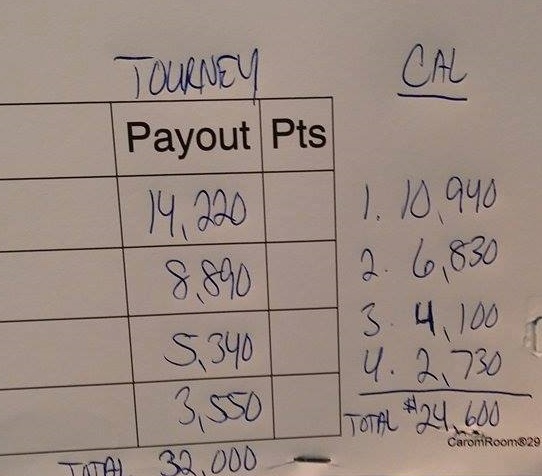 TOURNEY CAL
Payout Pts
14,220 1. 10,940
8,890 2. 6,830
5,340 3. 4,100
4. 2,730
3,550 TOTAL $24,600
CaromRoom®29
TOTAL 32,000